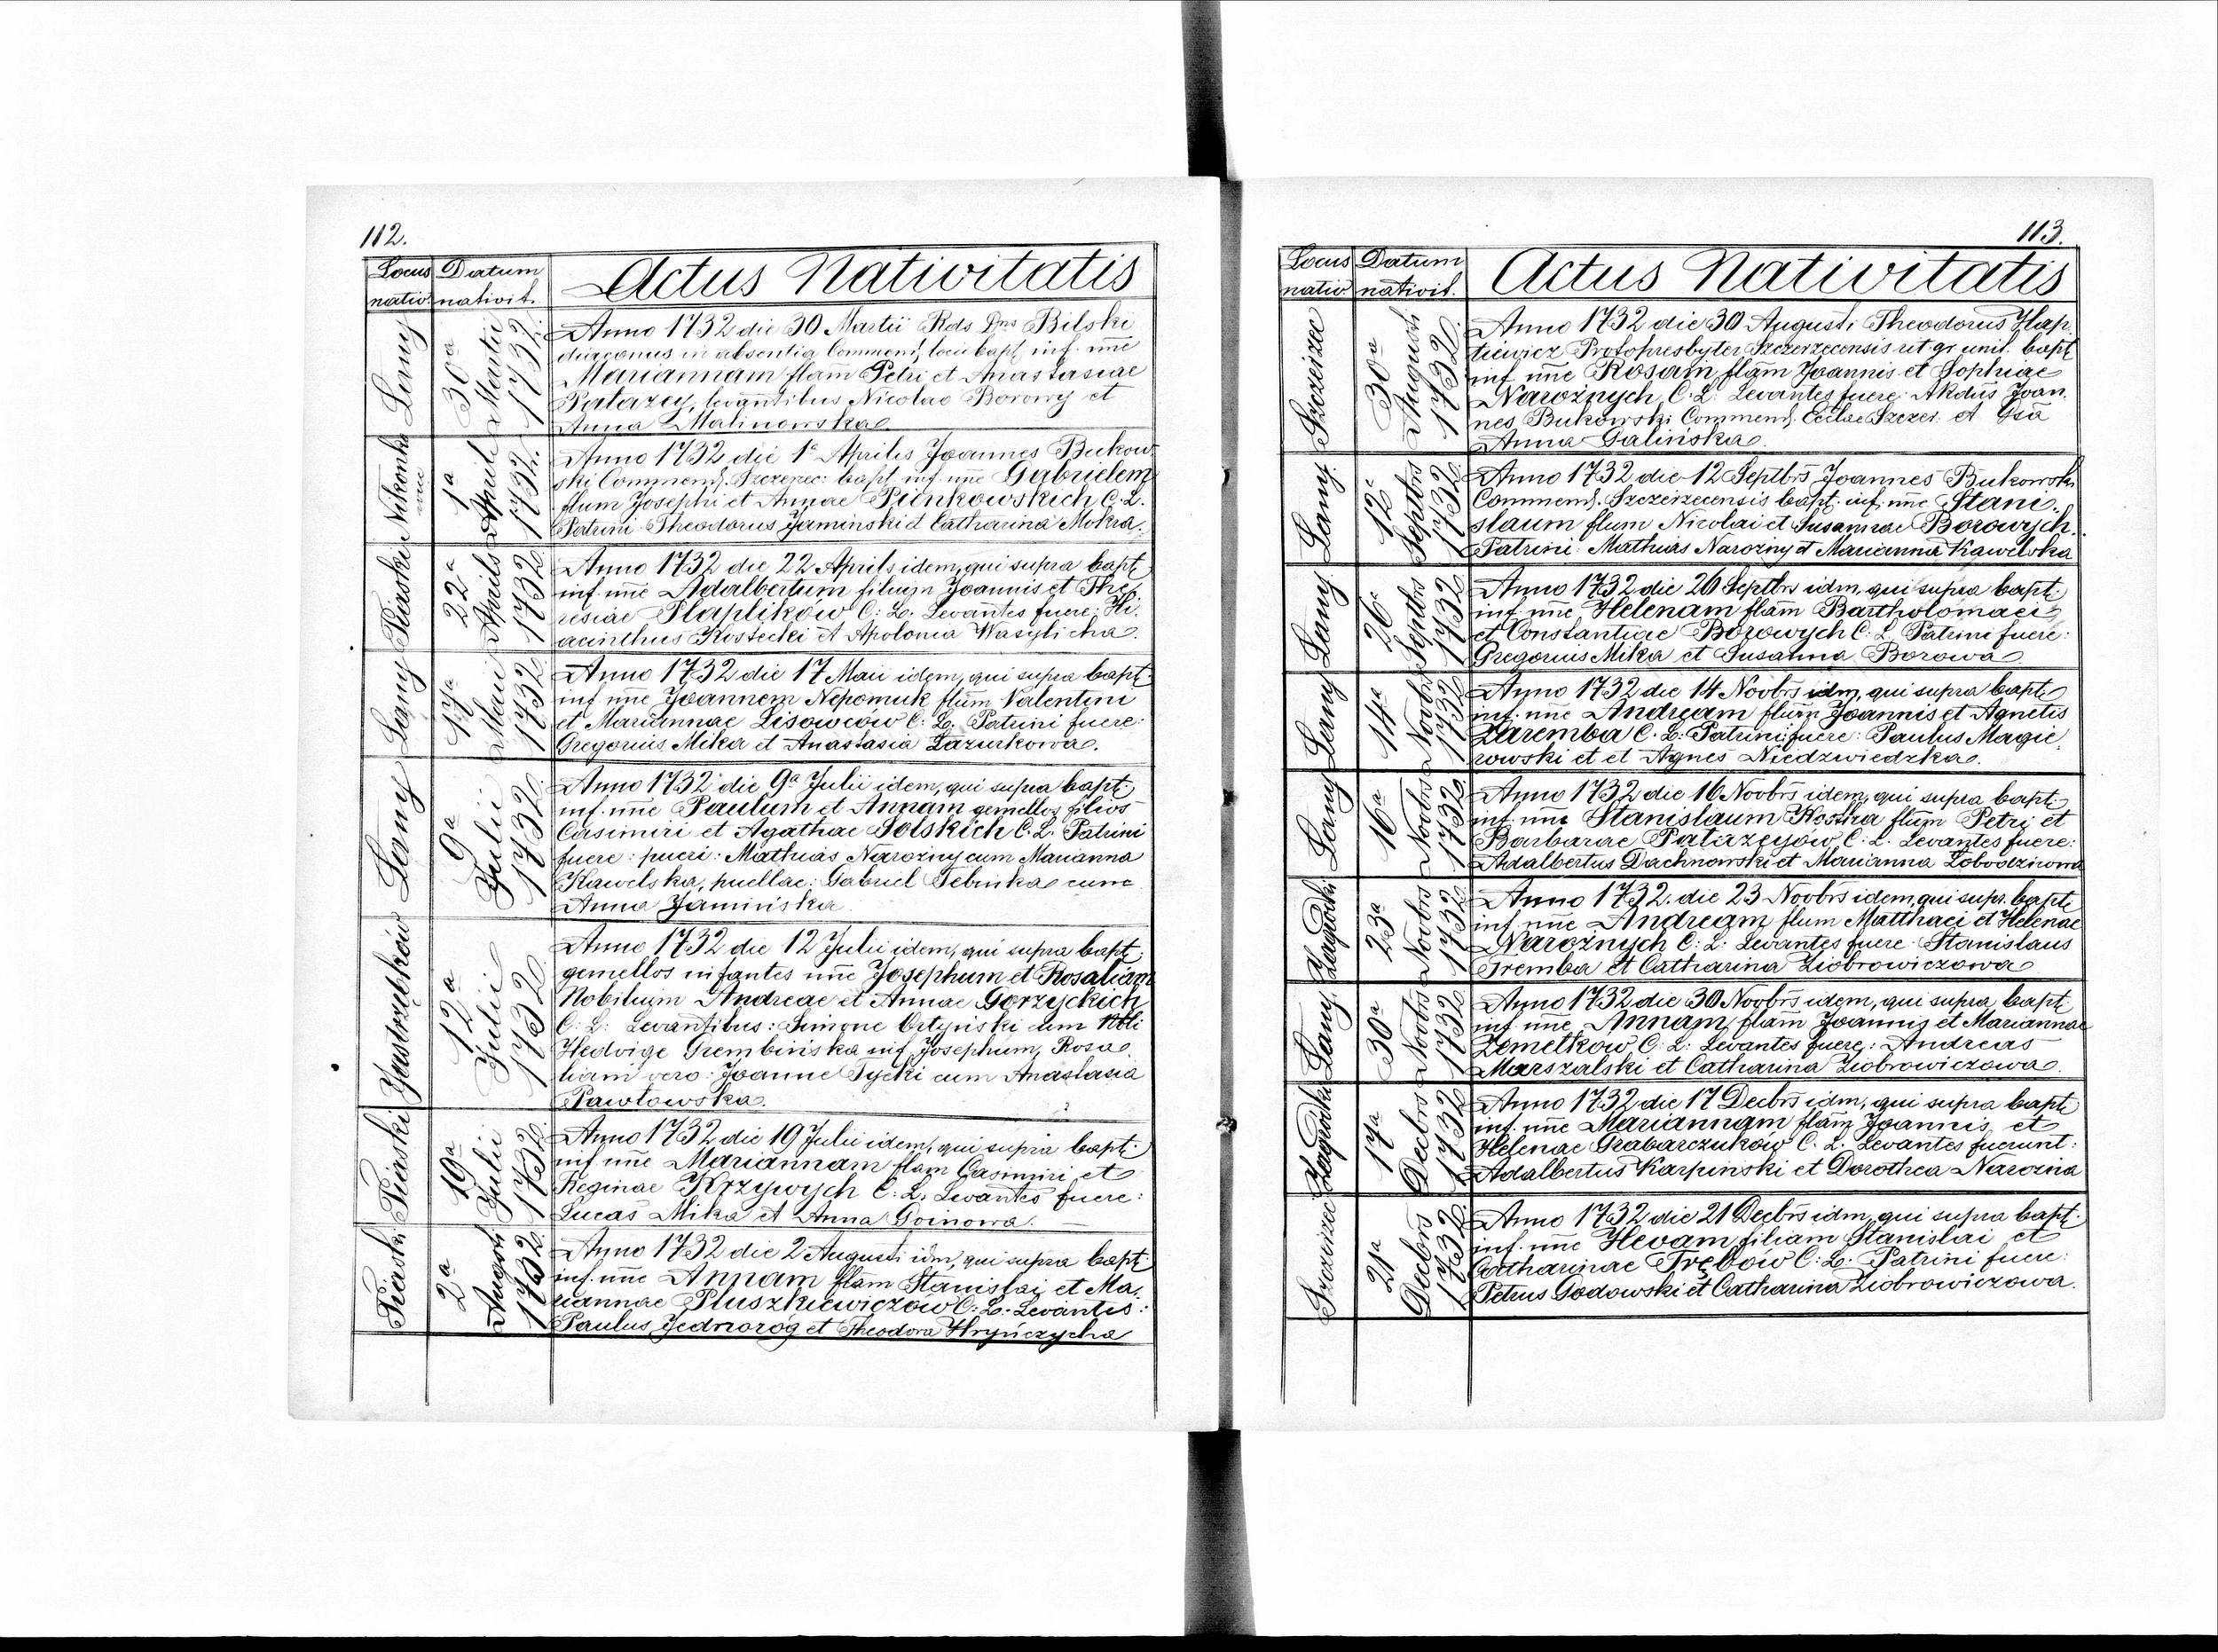 112.
Locus nativ. Datum nativit. Actus Nativitatis
Łany 30a Martii 1732.
Anno 1732 die 30 Martii Rds Dns Bilski
diaconus in absentia Commend. loci bapt. inf. nne
Mariannam flam Petri et Anastasiae
Patazey, levantibus Nicolao Borowy et
Anna Malinowska
Nikonkowice 1a April 1732.
Anno 1732 die 1a Aprilis Joannes Bukow
ski Commend. Szczerzec: bapt inf. nne Gabrielem
flum Josephi et Annae Piinkowskich C. L.
Patrini Theodorus Jaminski et Catharina Mokra.
Piaski 22a Aprils 1732
Anno 1732 die 22 Aprils idem, qui supra bapt
inf. nne Adalbertum filium Joannis et The
resiae Płaplików C: L. Levantes fuere: Hi
acinthus Kostecki et Apolonia Wasylicha.
Łany 17a Maii 1732
Anno 1732 die 17 Maii idem, qui supra bapt.
inf nne Joannem Nepomuk flum Valentini
et Mariannae Lisowców C: L. Patrini fuere:
Gregorius Mika et Anastasia Łazurkowa.
Łany 9a Julii 1732.
Anno 1732 die 9a Julii idem, qui supra bapt.
inf. nne Paulum et Annam gemellos filios
Casimiri et Agathae Solskich C. L. Patrini
fuere: pueri: Mathias Narożny cum Marianna
Kawelska, puellae: Gabriel Tebinka cum
Anna Jamińska
Jastrzębków 12a Julii 1732
Anno 1732 die 12 Julii idem, qui supra bapt
gemellos infantes nne Josephum et Rosaliam
Nobilium Andreae et Annae Gorzyckich
C: L: Levantibus: Simone Ortyński cum Nbli
Hedvige Grembińska inf Josephum, Rosa
liam vero: Joanne Tycki cum Anastasia
Pawłowska.
Piaski 19a Julii 1732
Anno 1732 die 19 Julii idem, qui supra bapt.
inf nne Mariannam flam Casimiri et
Reginae Krzywych C: L. Levantes fuere:
Lucas Mika et Anna Goinowa.
Piaski 2a Augusti 1732.
Anno 1732 die 2 Augusti idm, qui supra bapt
inf. nne Annam flam Stanislai et Ma.
riannae Pluszkiewiczów C: L. Levantes:
Paulus Jednoróg et Theodora Hryńczycha
113.
Locus nativ Datum nativit. Actus Nativitatis
Szczerzec 30a Augusti 1732.
Anno 1732 die 30 Augusti Theodorus Hap
tiewicz Protopresbyter Szczerzecensis rit. gr. unit. bapt
inf nne Rosam flam Joannis et Sophiae
Narożnych C. L: Levantes fuere: Akdus Joan.
nes Bukowski Commend. Ecclae Szczer. et Gsa
Anna Galińska.
Łany 12a Septbrs 1732
Anno 1732 die 12 Septbrs Joannes Bukowski
Commend. Szczerzecensis bapt. inf. nne Stani.
slaum flum Nicolai et Susannae Borowych.
Patrini: Mathias Narożny et Marianna Kawelska
Łany 26a Septbrs 1732
Anno 1732 die 26 Septbrs idm, qui supra bapt.
inf. nne Helenam flam Bartholomaei
et Constantiae Borowych C: L. Patrini fuere:
Gregorius Mika et Susanna Borowa
Łany 14a Novbrs 1732
Anno 1732 die 14 Novbrs idm, qui supra bapt.
inf. nne Andream flum Joannis et Agnetis
Zaremba C. L: Patrini fuere: Paulus Magie
rowski et et Agnes Niedzwiedzka.
Łany 16a Novbrs 1732.
Anno 1732 die 16 Novbrs idem, qui supra bapt.
inf. nne Stanislaum Kostka flum Petri et
Barbarae Patazeyów C. L. Levantes fuere:
Adalbertus Dachnowski et Marianna Łobodzinowa
Zagrodki 23a Novbrs 1732.
Anno 1732. die 23 Novbrs idem, qui supr. bapt
inf nne Andream flum Matthaei et Helenae
Narożnych C: L: Levantes fuere: Stanislaus
Tremba et Catharina Ziobrowiczowa
Łany 30a Novbrs 1732
Anno 1732 die 30 Novbrs idem, qui supra bapt.
inf nne Annam flam Joannis et Mariannae
Zemełków C: L: Levantes fuere: Andreas
Marszalski et Catharina Ziobrowiczowa.
Zagrodki 17a Decbrs 1732
Anno 1732 die 17 Decbrs idm, qui supra bapt.
inf. nne Mariannam flam Joannis et
Helenae Grabarczuków C. L. Levantes fuerunt:
Adalbertus Karpinski et Dorothea Narożna
Szczerzec 21a Decbrs 1732.
Anno 1732 die 21 Decbrs idm, qui supra bapt.
inf. nne Hevam filiam Stanislai et
Catharinae Trębów C: L: Patrini fuere:
Petrus Godowski et Catharina Ziobrowiczowa.